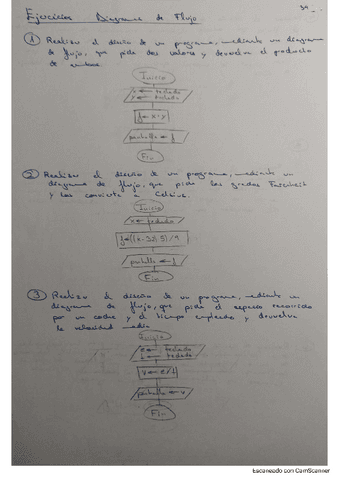 Ejercicios Diagramas de Flujo
① Realizar el diseño de un programa, mediante un diagrama
de flujo, que pida dos valores y devuelva el producto
de ambos.
Inicio
x ← teclado
y ← teclado
f ← x · y
pantalla ← f
Fin
② Realizar el diseño de un programa, mediante un
diagrama de flujo, que pida los grados Farenheit
y los convierta a Celsius.
Inicio
x ← teclado
f ← ((x-32)·5)/9
pantalla ← f
Fin
③ Realizar el diseño de un programa, mediante un
diagrama de flujo, que pida el espacio recorrido
por un coche y el tiempo empleado y devuelva
la velocidad media
Inicio
e ← teclado
t ← teclado
v ← e/t
pantalla ← v
Fin
Escaneado con CamScanner